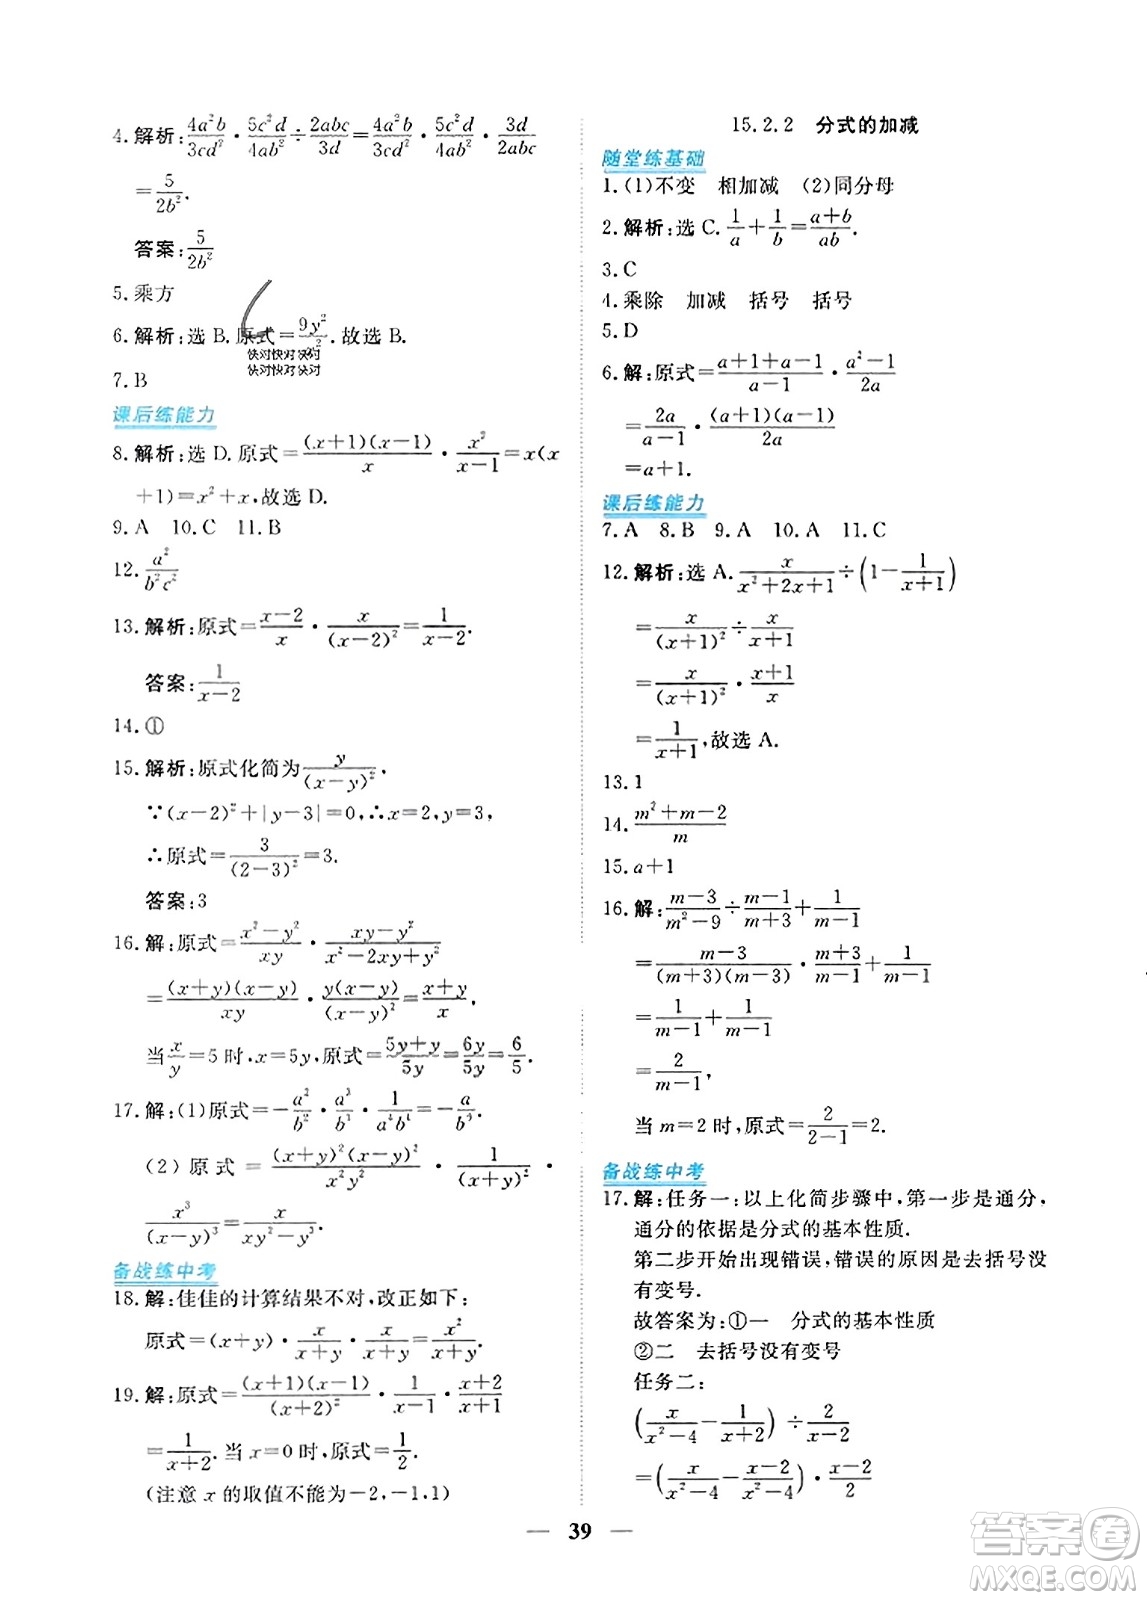 4.解析:4a²b/3cd²·5c²d/4ab²÷2abc/3d=4a²b/3cd²·5c²d/4ab²·3d/2abc
=5/2b².
答案:5/2b²
5.乘方
6.解析:选 B.原式=9y²/x².故选 B.
快对快对快对
快对快对快对
7.B
课后练能力
8.解析:选 D.原式=(x+1)(x-1)/x·x²/x-1=x(x
+1)=x²+x,故选 D.
9.A 10.C 11.B
12.a²/b²c²
13.解析:原式=x-2/x·x/(x-2)²=1/x-2.
答案:1/x-2
14.①
15.解析:原式化简为y/(x-y)²,
∵(x-2)²+|y-3|=0,∴x=2,y=3,
∴原式=3/(2-3)²=3.
答案:3
16.解:原式=x²-y²/xy·xy-y²/x²-2xy+y²
=(x+y)(x-y)/xy·y(x-y)/(x-y)²=x+y/x.
当x/y=5 时,x=5y,原式=5y+y/5y=6y/5y=6/5.
17.解:(1)原式=-a²/b²·a³/b³·1/a⁴b⁴=-a/b⁹.
(2)原式=(x+y)²(x-y)²/x²·1/(x+y)²·
x³/(x-y)³=x/xy²-y³.
备战练中考
18.解:佳佳的计算结果不对,改正如下:
原式=(x+y)·x/x+y·x/x+y=x²/x+y
19.解:原式=(x+1)(x-1)/(x+2)²·1/x-1·x+2/x+1
=1/x+2.当 x=0 时,原式=1/2.
(注意 x 的取值不能为-2,-1,1)
15.2.2 分式的加减
随堂练基础
1.(1)不变 相加减 (2)同分母
2.解析:选 C.1/a+1/b=a+b/ab.
3.C
4.乘除 加减 括号 括号
5.D
6.解:原式=a+1+a-1/a-1·a²-1/2a
=2a/a-1·(a+1)(a-1)/2a
=a+1.
课后练能力
7.A 8.B 9.A 10.A 11.C
12.解析:选 A.x/x²+2x+1÷(1-1/(x+1))
=x/(x+1)²÷x/x+1
=x/(x+1)²·x+1/x
=1/x+1,故选 A.
13.1
14.m²+m-2/m
15.a+1
16.解:m-3/m²-9÷m-1/m+3+1/m-1
=m-3/(m+3)(m-3)·m+3/m-1+1/m-1
=1/m-1+1/m-1
=2/m-1,
当 m=2 时,原式=2/2-1=2.
备战练中考
17.解:任务一:以上化简步骤中,第一步是通分,
通分的依据是分式的基本性质.
第二步开始出现错误,错误的原因是去括号没
有变号.
故答案为:①一 分式的基本性质
②二 去括号没有变号
任务二:
(x/x²-4-1/x+2)÷2/x-2
=(x/x²-4-x-2/x²-4)·x-2/2
39
答案圈
MXQE.COM